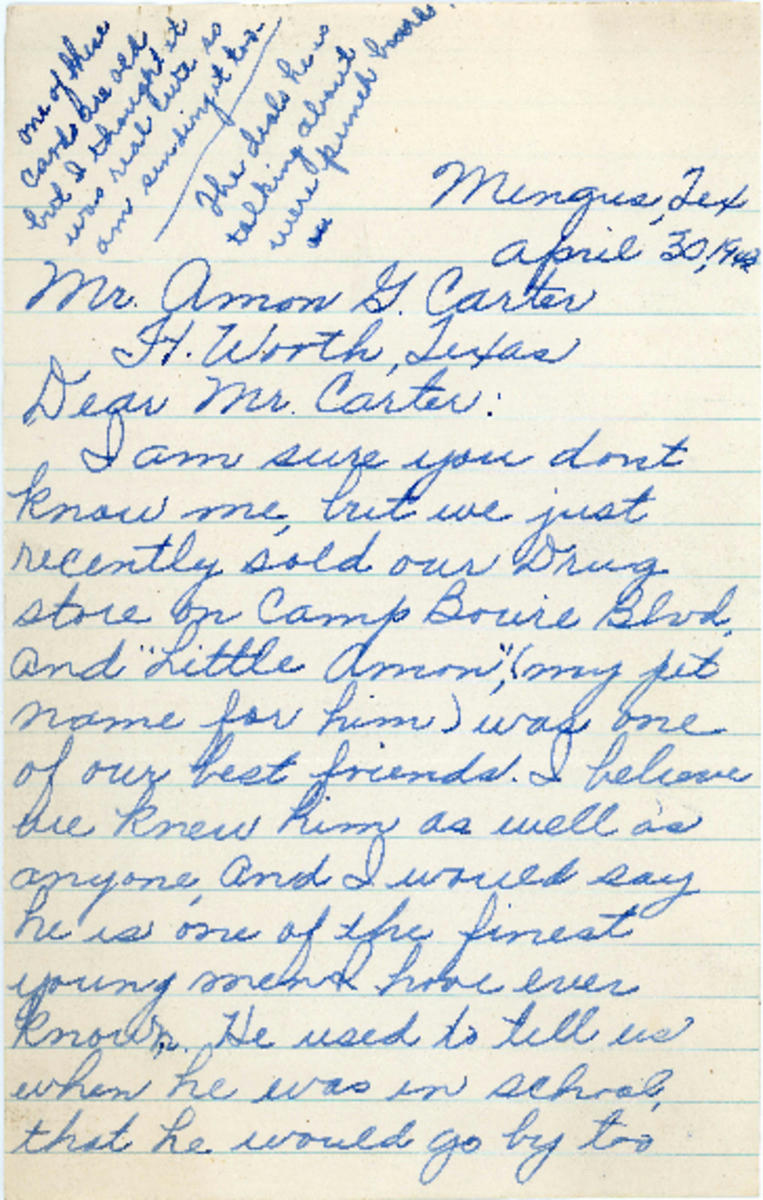 one of these
cards are old
but I thought it
was real cute so
am sending it too
The deals he is
talking about
were punch boards.
Mingus, Tex
April 30, 1943
Mr. Amon G. Carter
Ft. Worth, Texas
Dear Mr. Carter:
I am sure you dont
know me, but we just
recently sold our Drug
store on Camp Bowie Blvd,
and "Little Amon", (my pet
name for him) was one
of our best friends. I believe
we knew him as well as
anyone, and I would say
he is one of the finest
young men I have ever
known. He used to tell us
when he was in school,
that he would go by too